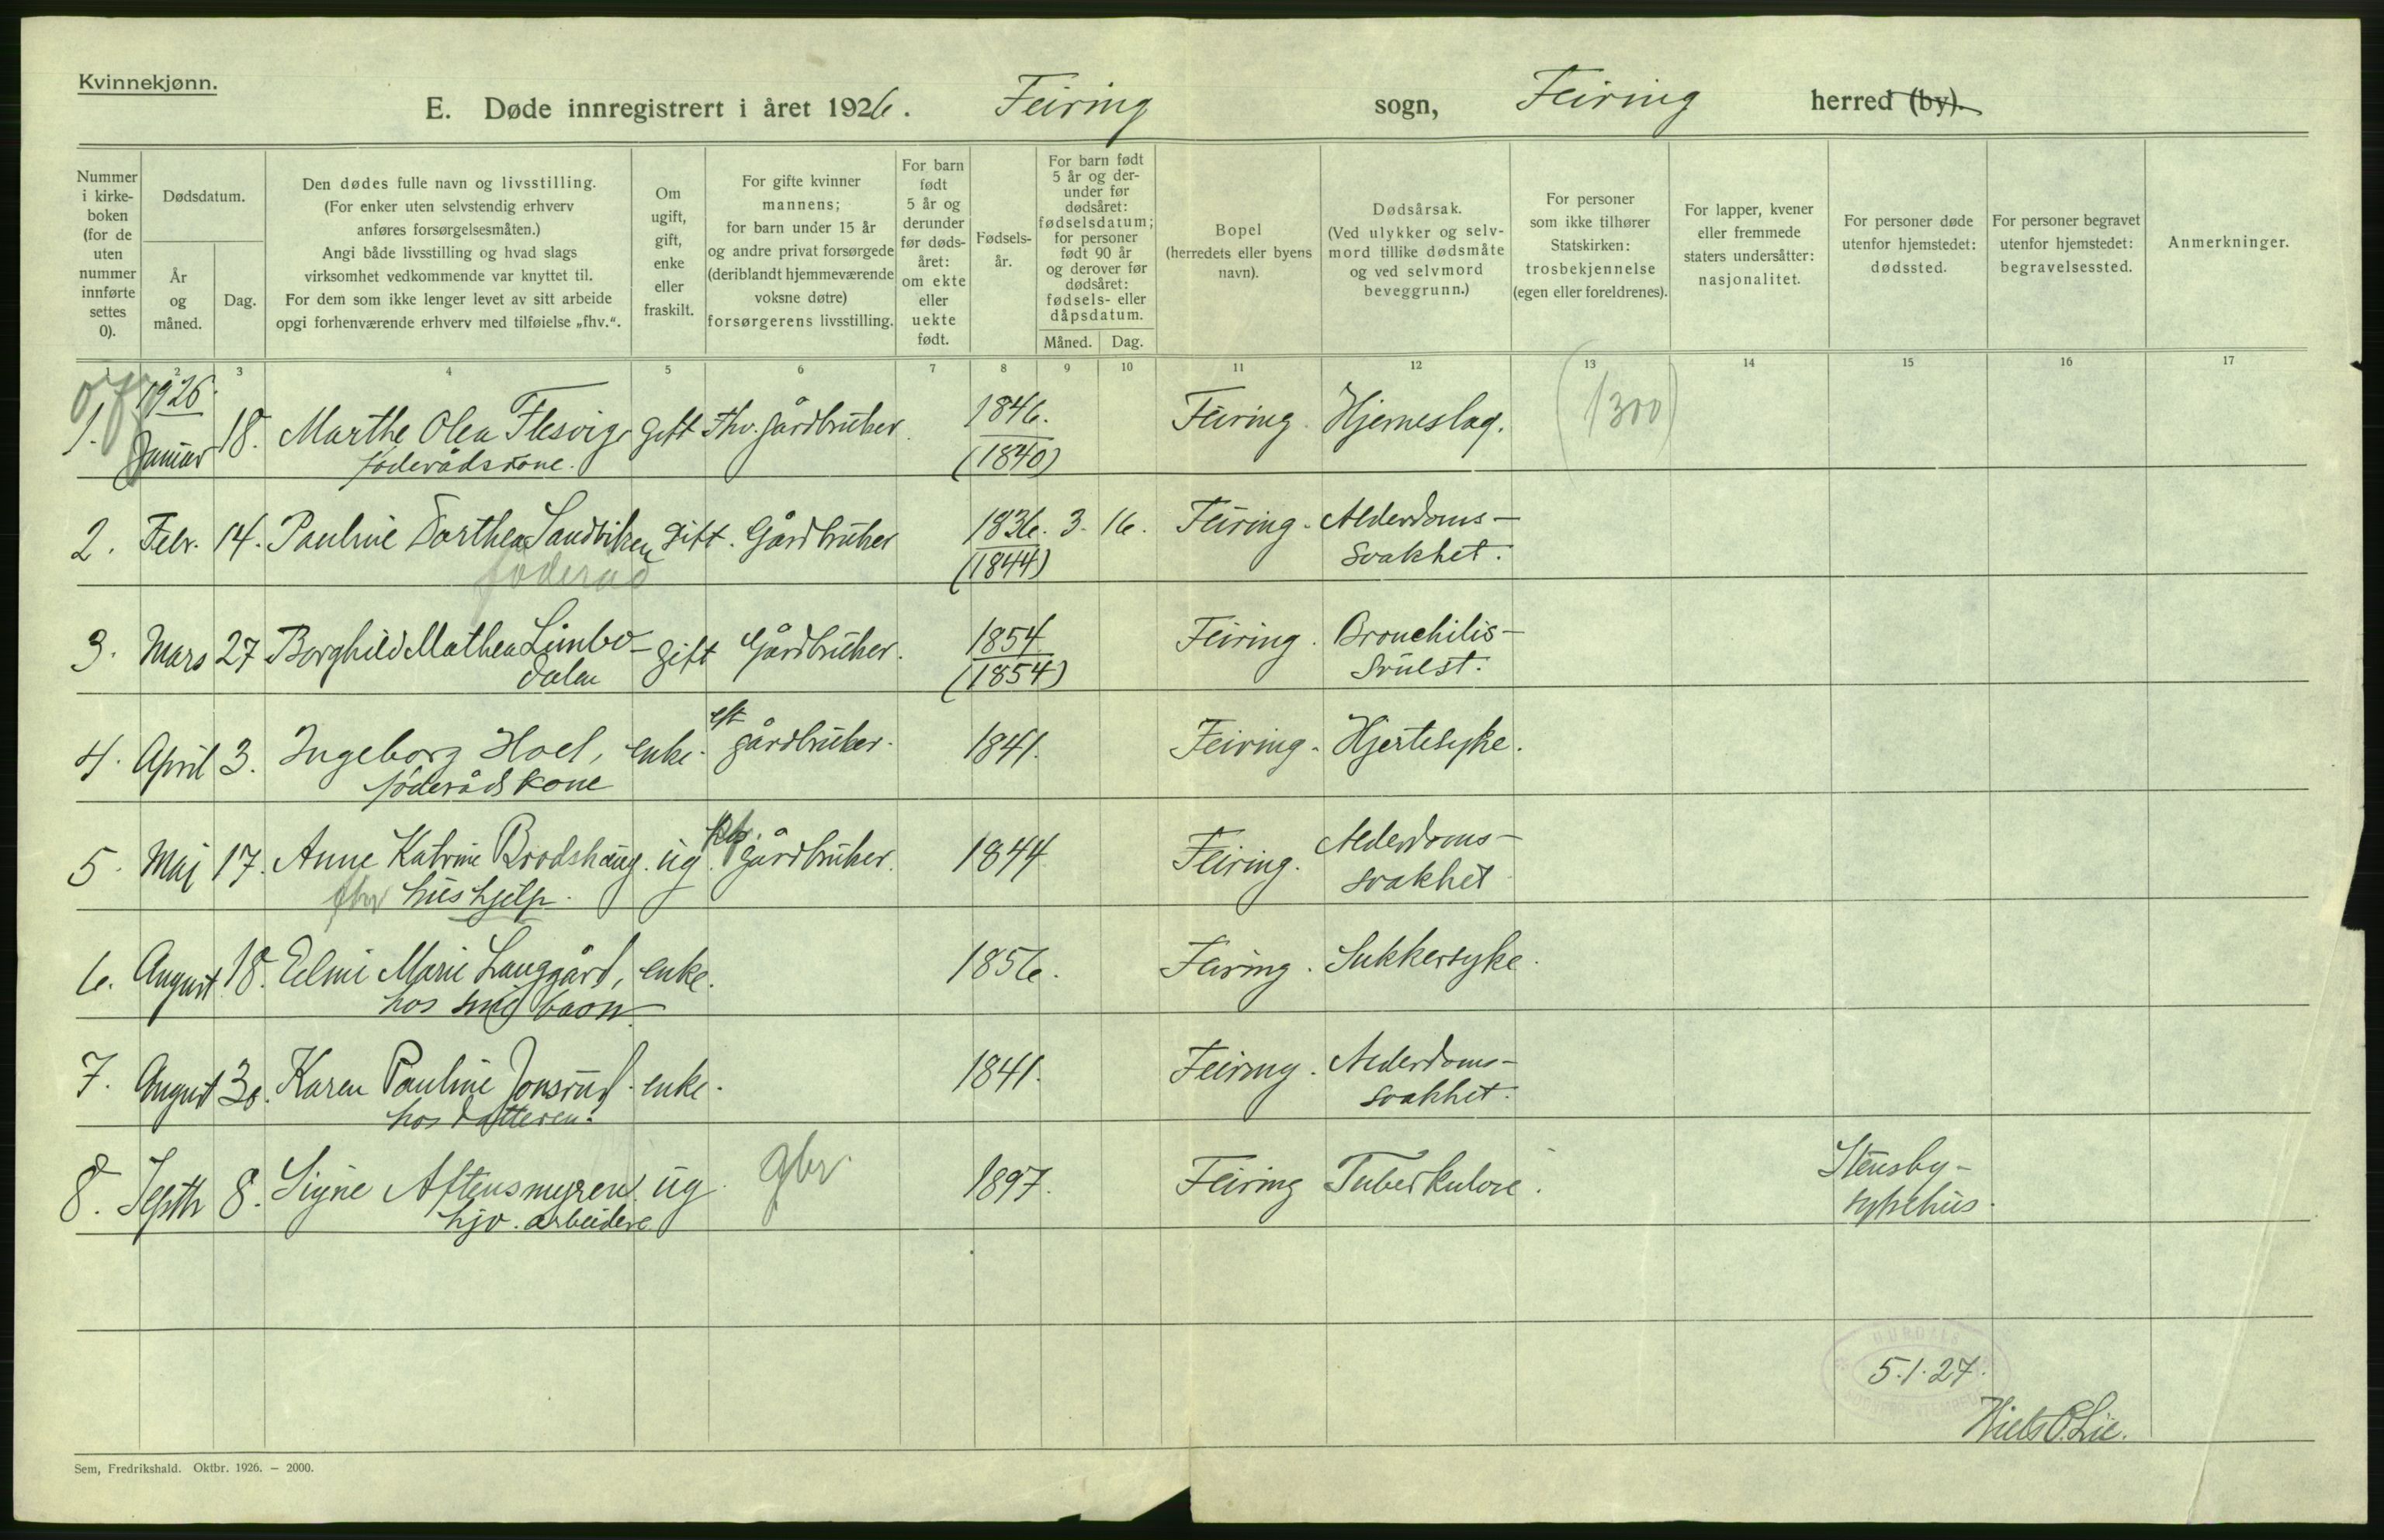 Kvinnekjønn.
E. Døde innregistrert i året 1926. Feiring sogn, Feiring herred (by).
Nummer i kirke-boken (for de uten nummer innførte settes 0).
Dødsdatum.
År og måned.
Dag.
Den dødes fulle navn og livsstilling.
(For enker uten selvstendig erhverv
anføres forsørgelsesmåten.)
Angi både livsstilling og hvad slags
virksomhet vedkommende var knyttet til.
For dem som ikke lenger levet av sitt arbeide
opgi forhenværende erhverv med tilføielse „fhv.“.
Om ugift, gift, enke eller fraskilt.
For gifte kvinner
mannens;
for barn under 15 år
og andre privat forsørgede
(deriblandt hjemmeværende
voksne døtre)
forsørgerens livsstilling.
For barn født 5 år og derunder før døds-året: om ekte eller uekte født.
Fødsels-år.
For barn født 5 år og der-under før dødsåret: fødselsdatum; for personer født 90 år og derover før dødsåret: fødsels- eller dåpsdatum.
Måned. Dag.
Bopel
(herredets eller byens
navn).
Dødsårsak.
(Ved ulykker og selv-
mord tillike dødsmåte
og ved selvmord
beveggrunn.)
For personer
som ikke tilhører
Statskirken:
trosbekjennelse
(egen eller foreldrenes).
For lapper, kvener
eller fremmede
staters undersåtter:
nasjonalitet.
For personer døde
utenfor hjemstedet:
dødssted.
For personer begravet
utenfor hjemstedet:
begravelsessted.
Anmerkninger.
1 2 3 4 5 6 7 8 9 10 11 12 13 14 15 16 17
1926.
1. Januar 18. Marthe Olea Flesvig, gift fhv. gårdbruker. 1846. Feiring. Hjerneslag. (1300)
føderådskone. (1840)
2. Febr. 14. Pauline Dorthea Sandviken gift. Gårdbruker 1836. 3. 16. Feiring. Alderdoms-
føderåd (1844) svakhet.
3. Mars 27 Borghild Mathea Limbo- gift Gårdbruker. 1854 Feiring. Bronchitis-
dalen (1854) svulst.
eft
4. April 3. Ingeborg Hoel, enke. gårdbruker. 1841. Feiring. Hjertesyke.
føderådskone
5. Mai 17. Anne Katrine Brodshaug. ug. gårdbruker. 1844 Feiring. Alderdoms-
fhv hushjelp. svakhet
6. August 18. Elmi Marie Langgård, enke. 1856. Feiring. Sukkersyke.
hos sine barn
7. August 30. Karen Pauline Jonsrud. enke. 1841. Feiring. Alderdoms-
hos datteren. svakhet.
8. Septb 8. Signe Aftensmyren. ug. gbr. 1897. Feiring Tuberkulose. Stensby-
hjv. arbeidere sykehus.
HURDALS
5.1.27.
Niels P. Lie.
Sem, Fredrikshald. Oktbr. 1926. — 2000.